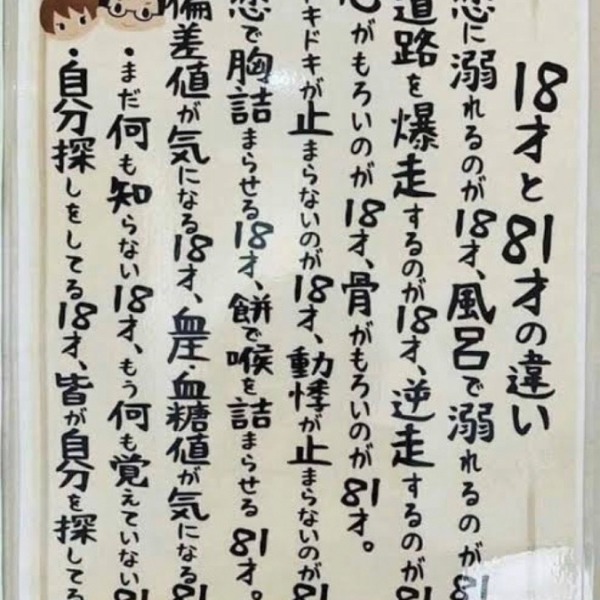 18才と81才の違い
恋に溺れるのが18才、風呂で溺れるのが81
道路を爆走するのが18才、逆走するのが81
心がもろいのが18才、骨がもろいのが81才。
ドキドキが止まらないのが18才、動悸が止まらないのが81
恋で胸詰まらせる18才、餅で喉を詰まらせる81才。
偏差値が気になる18才、血圧・血糖値が気になる81
・まだ何も知らない18才、もう何も覚えていない81
・自分探しをしてる18才、皆が自分を探してる